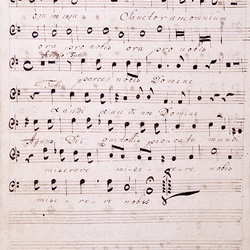 Sanctorum omnium
ora pro nobis ora pro nobis
Tutti parce nobis Domine
exaudi nos Domine
Agnus Dei qui tollis peccata mundi
miserere misere re
mise re re nobis